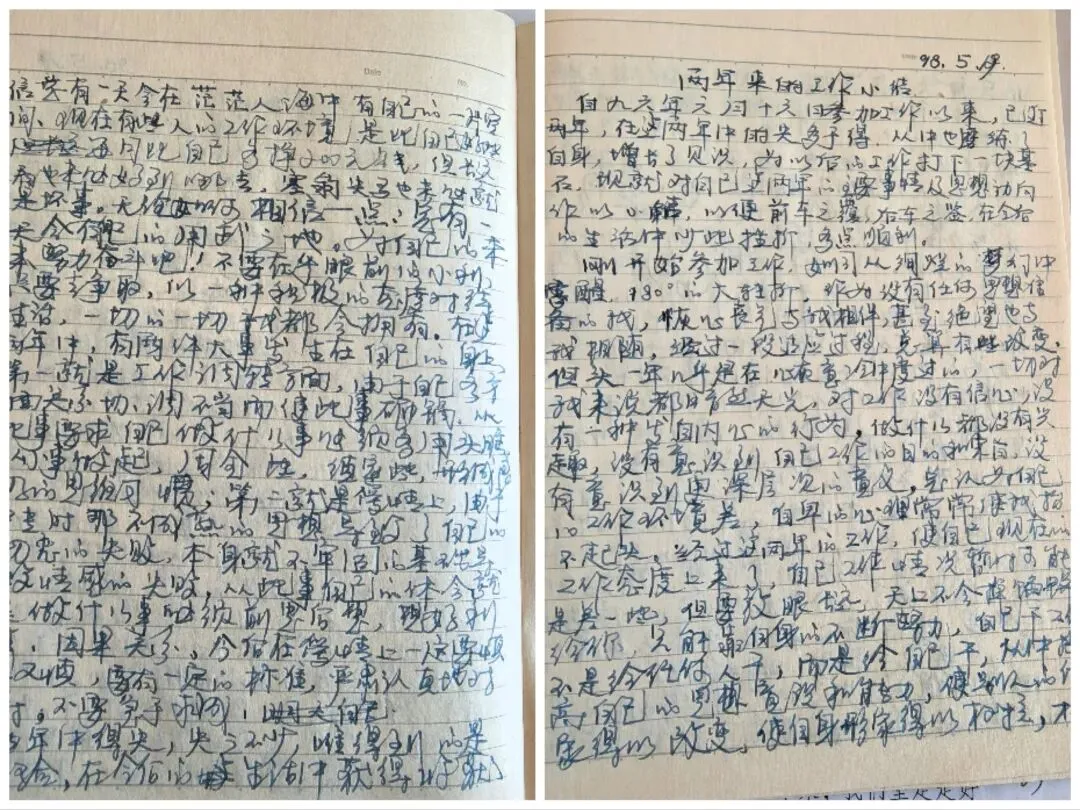 信总有一天会在茫茫人海中有自己的一片空
间、现在有些人的工作环境是比自己好些
每月比自己多挣200元钱，但长久
看也未必好到哪去，塞翁失马也未必就
是坏事。无论如何相信一点：总有一
天会有自己的用武之地。为自己的未
来努力奋斗吧！不要在乎眼前的小利，
只要去争取，以一种积极的态度对待
生活，一切的一切我都会拥有。在这
两年中，有两件大事发生在自己的身上
第一就是工作调转方面，由于自己多方
面关系不切，调不当而使此事砸锅，从
此事要求自己做什么事必须多用头脑
从事做起，周全性，
的思维习惯；第二就是爱情上，由于
当时那不成熟的思想导致了自己的
初恋的失败，本身就不牢固的基础导
致情感的失败，从此事自己的体会就
是做什么事必须前思后想，想好利
弊、因果关系，今后在爱情上一定要慎
又慎，要有一定的标准，严肃认真地对
待。不要急于求成，
两年中得失，失之不少，唯得到的是
经验，在今后的生活中获得
98.5.19.
两年来的工作小结
自九六年六月十六日参加工作以来，已近
两年，在这两年中的失多于得，从中也磨练了
自身，增长了见识，为以后的工作打下一块基
石，现就对自己这两年的主要事情及思想动向
作以小结，以便前车之覆，后车之鉴，在今后
的生活中少些挫折，多点顺利。
刚开始参加工作，如同从绚烂的梦幻中
惊醒，180°的大转折，作为没有任何思想信
备的我，恼心丧气与我相伴甚至绝望也与
我相随，经过一段适应过程，总算有些改变，
但头一年几乎是在心灰意冷中度过的，一切对
我来说都暗无天光，对工作没有信心，没
有一种出自内心的行为，做什么都没有兴
趣，没有意识到自己工作的目的和来自，没
有意识到更深层次的意义，总认为自己
的工作环境差，自卑的心理常常使我抬
不起头。经过这两年的工作，使自己现在的
工作态度上来了，自己工作情况暂时可能
是差一些，但要放眼于远，天上不会掉馅饼
给你，只能靠自身的不断努力，自己干工作
不是给任何人干，而是给自己干，从中提
高自己的思想意识和能力，使别人的
得以改变，使自身形象得以树立，才